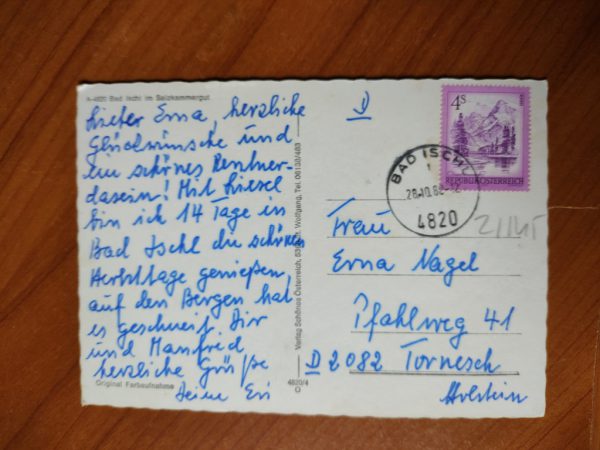 A-4820 Bad Ischl im Salzkammergut
Liebe Erna, herzliche
Glückwünsche und
ein schönes Rentner-
dasein! Mit Liesel
bin ich 14 Tage in
Bad Ischl die schönen
Herbsttage genießen,
auf den Bergen hat
es geschneit. Dir
und Manfred
herzliche Grüße
Deine Evi
Original Farbaufnahme
4820/4
Verlag Schönes Österreich, Wolfgang, Tel. 06138/483
D
4S
REPUBLIK ÖSTERREICH
BAD ISCHL
28.10.8
4820
Frau
Erna Nagel
Pfahlweg 41
D 2082 Tornesch
Holstein